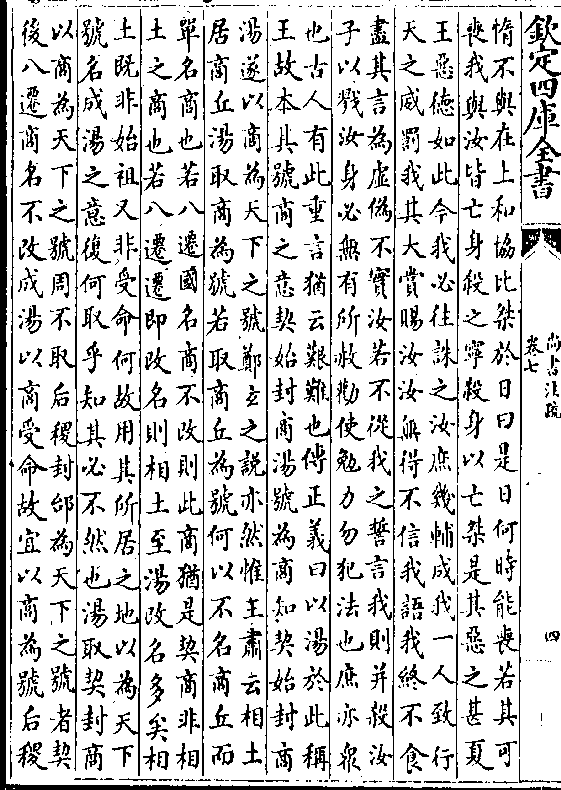 欽定四庫全書
尚書注疏
卷七
四
惰不與在上和協比桀於日曰是日何時能喪若其可
喪我與汝皆亡身殺之寧殺身以亡桀是其惡之甚夏
王惡德如此今我必往誅之汝庶幾輔成我一人致行
天之威罰我其大賞賜汝汝無得不信我語我終不食
盡其言為虛偽不實汝若不從我之誓言我則并殺汝
子以戮汝身必無有所赦勸使勉力勿犯法也庶亦衆
也古人有此重言猶云艱難也傳正義曰以湯於此稱
王故本其號商之意契始封商湯號為商知契始封商
湯遂以商為天下之號鄭玄之説亦然惟王肅云相土
居商丘湯取商為號若取商丘為號何以不名商丘而
單名商也若八遷國名商不改則此商猶是契商非相
土之商也若八遷遷即改名則相土至湯改名多矣相
土既非始祖又非受命何故用其所居之地以為天下
號名成湯之意復何取乎知其必不然也湯取契封商
以商為天下之號周不取后稷封邰為天下之號者契
後八遷商名不改成湯以商受命故宜以商為號后稷